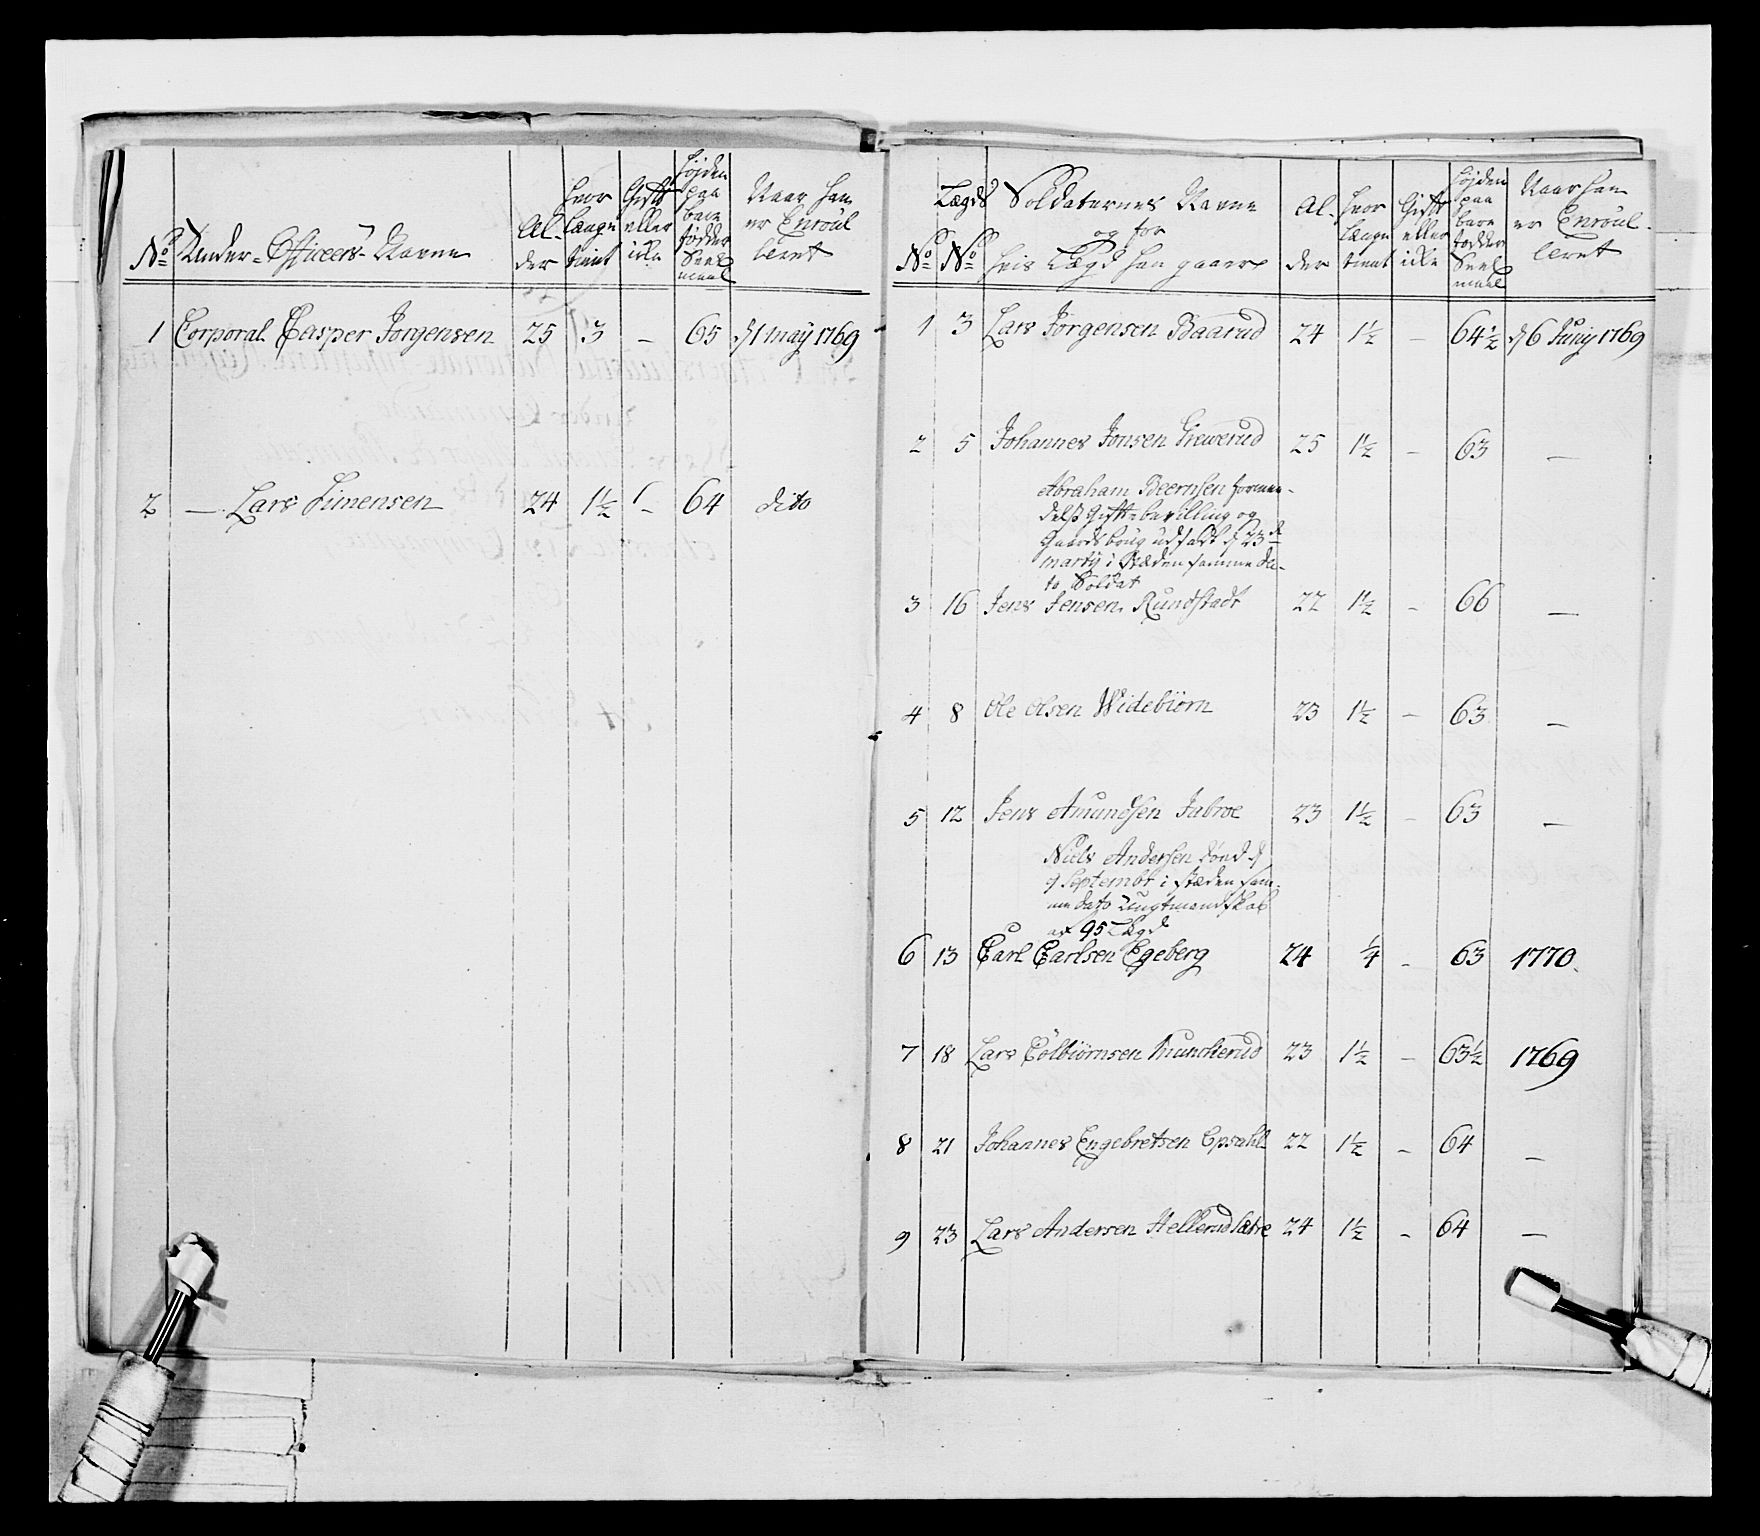 No Under-Officeers Navne | Alder | hvor længe tient | Gift eller icke | Højden paa bare fødder Seel maal | Naar han er Enroulleret
1 Corporal Casper Jorgensen 25 3 – 65 d 1 may 1769
2 — Lars Simensen 24 1½ 1 – 64 dito
No | Lægd No | Soldaternes Navne og for hvis Lægd han gaaer | Alder | hvor længe tient | Gift eller icke | Højden paa bare fødder Seel maal | Naar han er Enroulleret
1 3 Lars Jörgensen Baarud 24 1½ – 64½ d 6 Junij 1769
2 5 Johannes Jonsen Grewerud 25 1½ – 63 —
Abraham Beernsen formedelst Gifte bevilling og
Gaards brug udsadt d 23de
martij i stæden samme da-
to Soldat
3 16 Jens Jensen Rundstadt 22 1½ – 66 —
4 8 Ole Olsen Widebiörn 23 1½ – 63 —
5 12 Jens Amundsen Jabroe 23 1½ – 63 —
Niels Andersen dönd d
9 Septembr i stæden sam-
me dato Ungtmandskab
af 95 Lægd
6 13 Carl Carlsen Egeberg 24 ¼ – 63 1770
7 18 Lars Colbiörnsen Munckerud 23 1½ – 63½ 1769
8 21 Johannes Engebretsen Opsahl 22 1½ – 64 —
9 23 Lars Andersen Hellerudsætre 24 1½ – 64 —